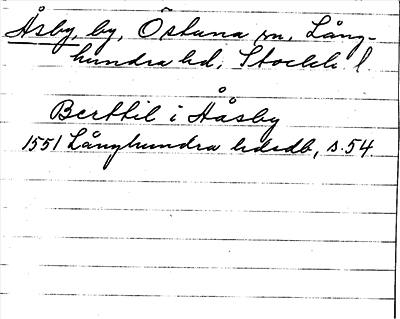 Åsby, by, Östuna sn, Lång-
hundra hd, Stockh. l.
Berttil i Håsby
1551 Långhundra hdsdb, s. 54.